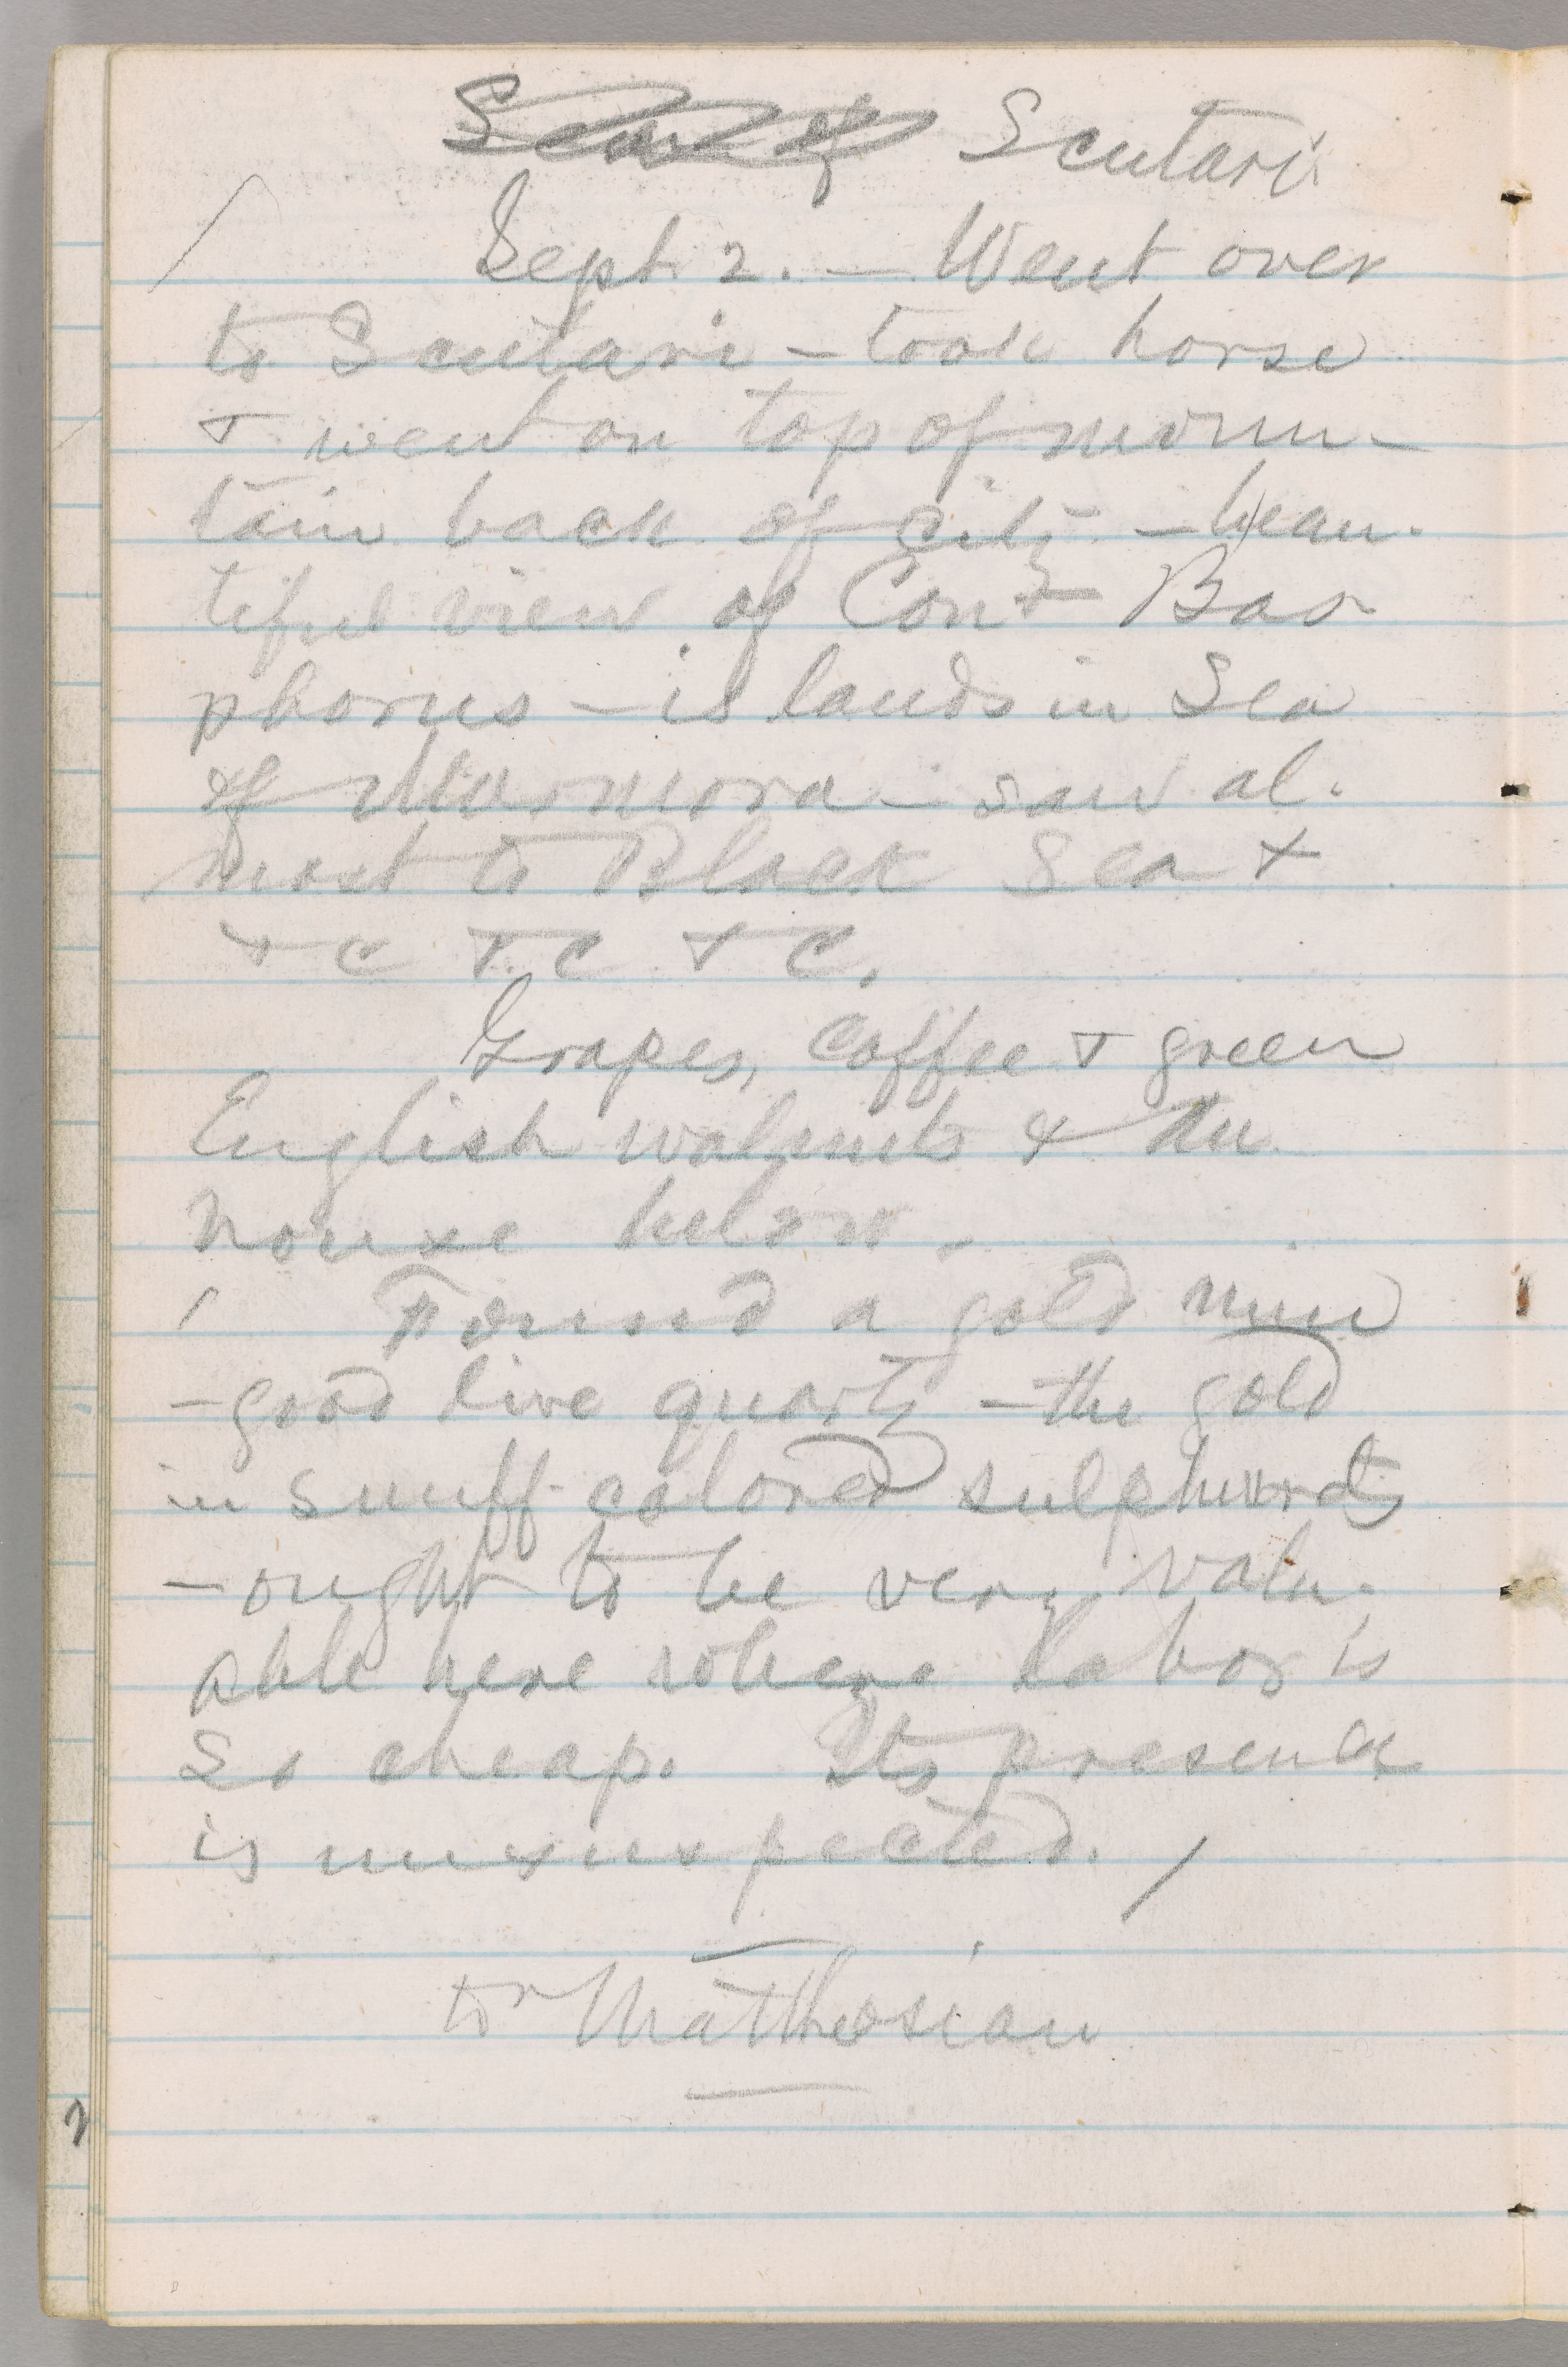 Scutari
Sept. 2. — Went over
to Scutari – took horse
& went on top of moun-
tain back of city – beau-
tiful view of Con & Bos-
phorus – islands in Sea
of Marmora – saw al-
most to Black Sea &
&c &c &c.
Grapes, coffee & green
English walnuts &
house below.
Found a gold mine
– good live quartz – the gold
in snuff-colored sulphurets
– ought to be very valu-
able here where labor is
so cheap. Its presence
is unsuspected.
to Matthosian